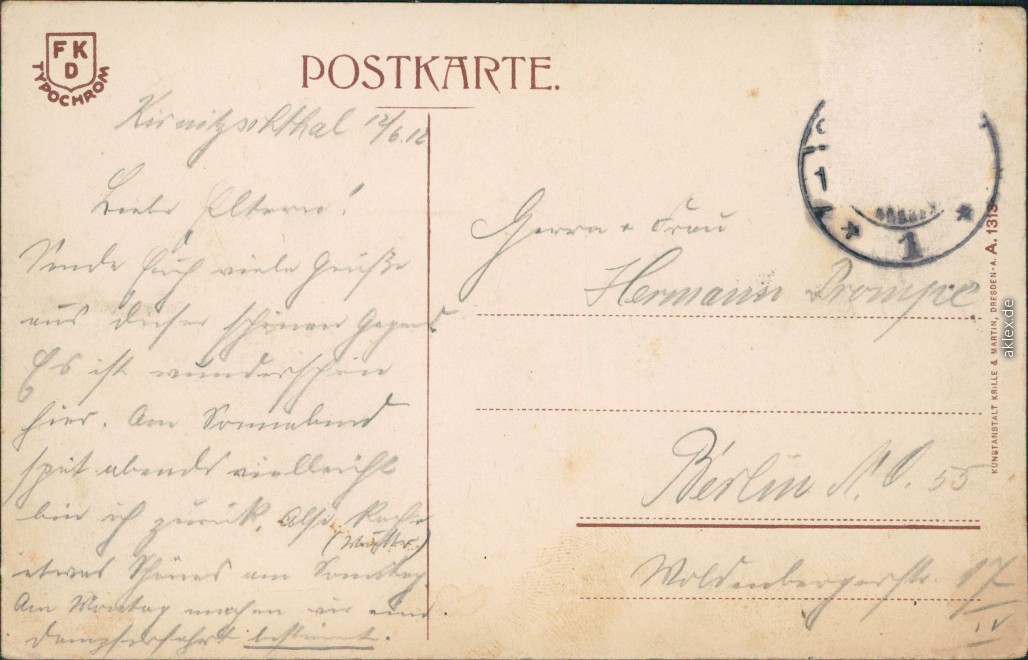 FKD
TYPOCHROM
POSTKARTE.
Kirnitzschthal 12/6.12
Liebe Eltern!
Sende Euch viele Grüße
aus dieser schönen Gegend
Es ist wunderschön
hier. Am Sonnabend
spät abends vielleicht
bin ich zurück. Also Koche
etwas Schönes am Sonntag
Am Montag machen wir eine
Dampferfahrt bestimmt.
Herrn + Frau
Hermann Prompe
Berlin N.O. 55
Woldenbergerstr. 17
IV
1
KUNSTANSTALT KRILLE & MARTIN, DRESDEN-A. A. 1313
aklex.de